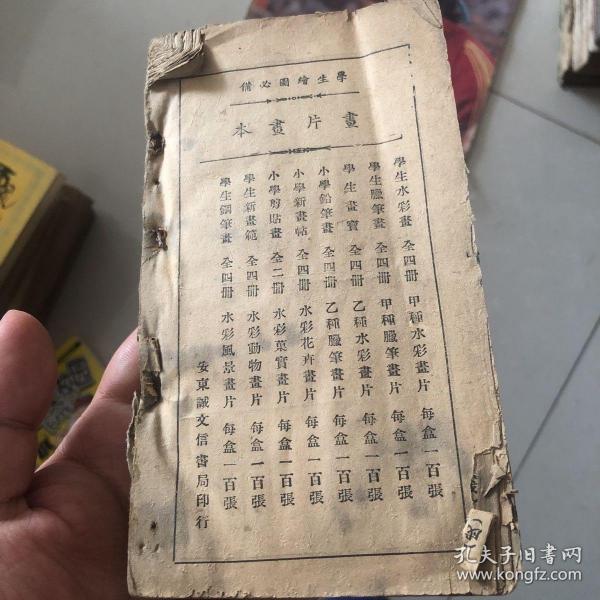 學生繪圖必備
畫片畫本
學生水彩畫 全四冊 甲種水彩畫片 每盒一百張
學生臘筆畫 全四冊 甲種臘筆畫片 每盒一百張
學生畫寶 全四冊 乙種水彩畫片 每盒一百張
小學鉛筆畫 全四冊 乙種臘筆畫片 每盒一百張
小學新畫帖 全四冊 水彩花卉畫片 每盒一百張
小學剪貼畫 全二冊 水彩菓實畫片 每盒一百張
學生新畫範 全四冊 水彩動物畫片 每盒一百張
學生鋼筆畫 全四冊 水彩風景畫片 每盒一百張
安東誠文信書局印行
孔夫子旧书网
www.kongfz.com